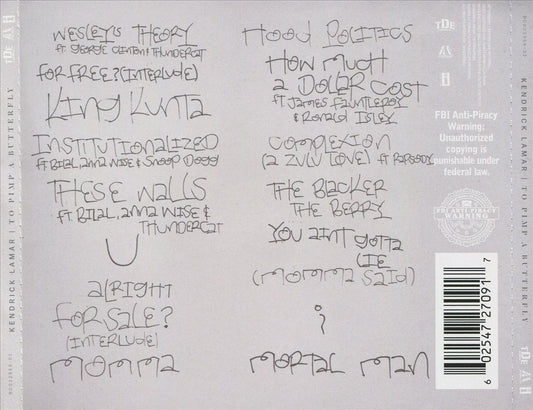 WESLEY'S THEORY
ft GEORGE CLINTON & THUNDERCAT
FOR FREE? (INTERLUDE)
KING KUNTA
INSTITUTIONALIZED
ft BILAL, ANNA WISE & SNOOP DOGG
THESE WALLS
ft BILAL, ANNA WISE &
THUNDERCAT
U
ALRIGHT
FOR SALE?
(INTERLUDE)
MOMMA
HOOD POLITICS
HOW MUCH
A DOLLAR COST
ft JAMES FAUNTLEROY
& RONALD ISLEY
COMPLEXION
(A ZULU LOVE) ft RAPSODY
THE BLACKER
THE BERRY
YOU AINT GOTTA
LIE
(MOMMA SAID)
i
MORTAL MAN
FBI Anti-Piracy
Warning:
Unauthorized
copying is
punishable under
federal law.
FBI ANTI-PIRACY
WARNING
6 02547 27091 7
KENDRICK LAMAR | TO PIMP A BUTTERFLY
KENDRICK LAMAR | TO PIMP A BUTTERFLY
TDE
TDE
TDE